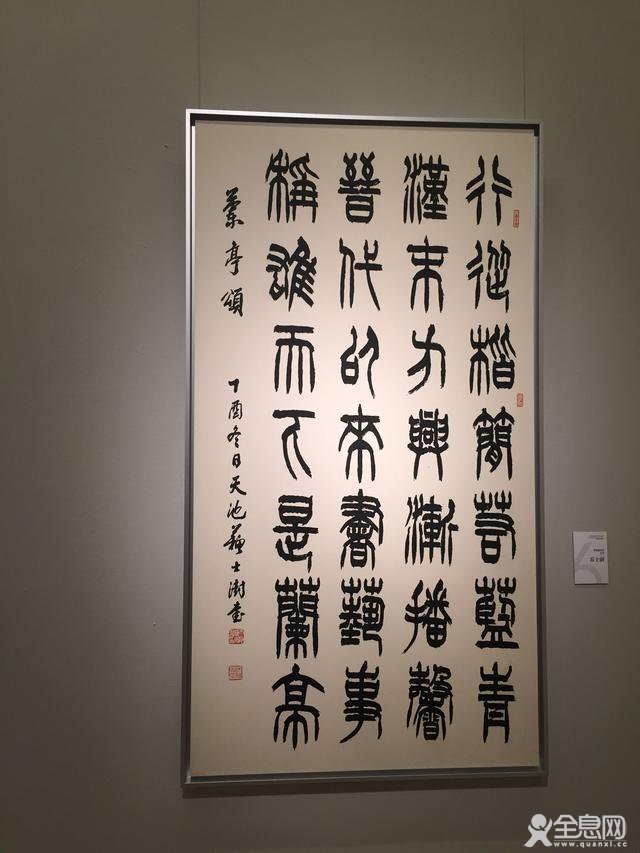 行從楷簡若藍青
漢末方興漸播馨
晉代以來書藝事
稱雄天下是蘭亭
蘭亭頌 丁酉冬日天池蘇士澍書
苏士澍
全息网
www.quanxi.cc